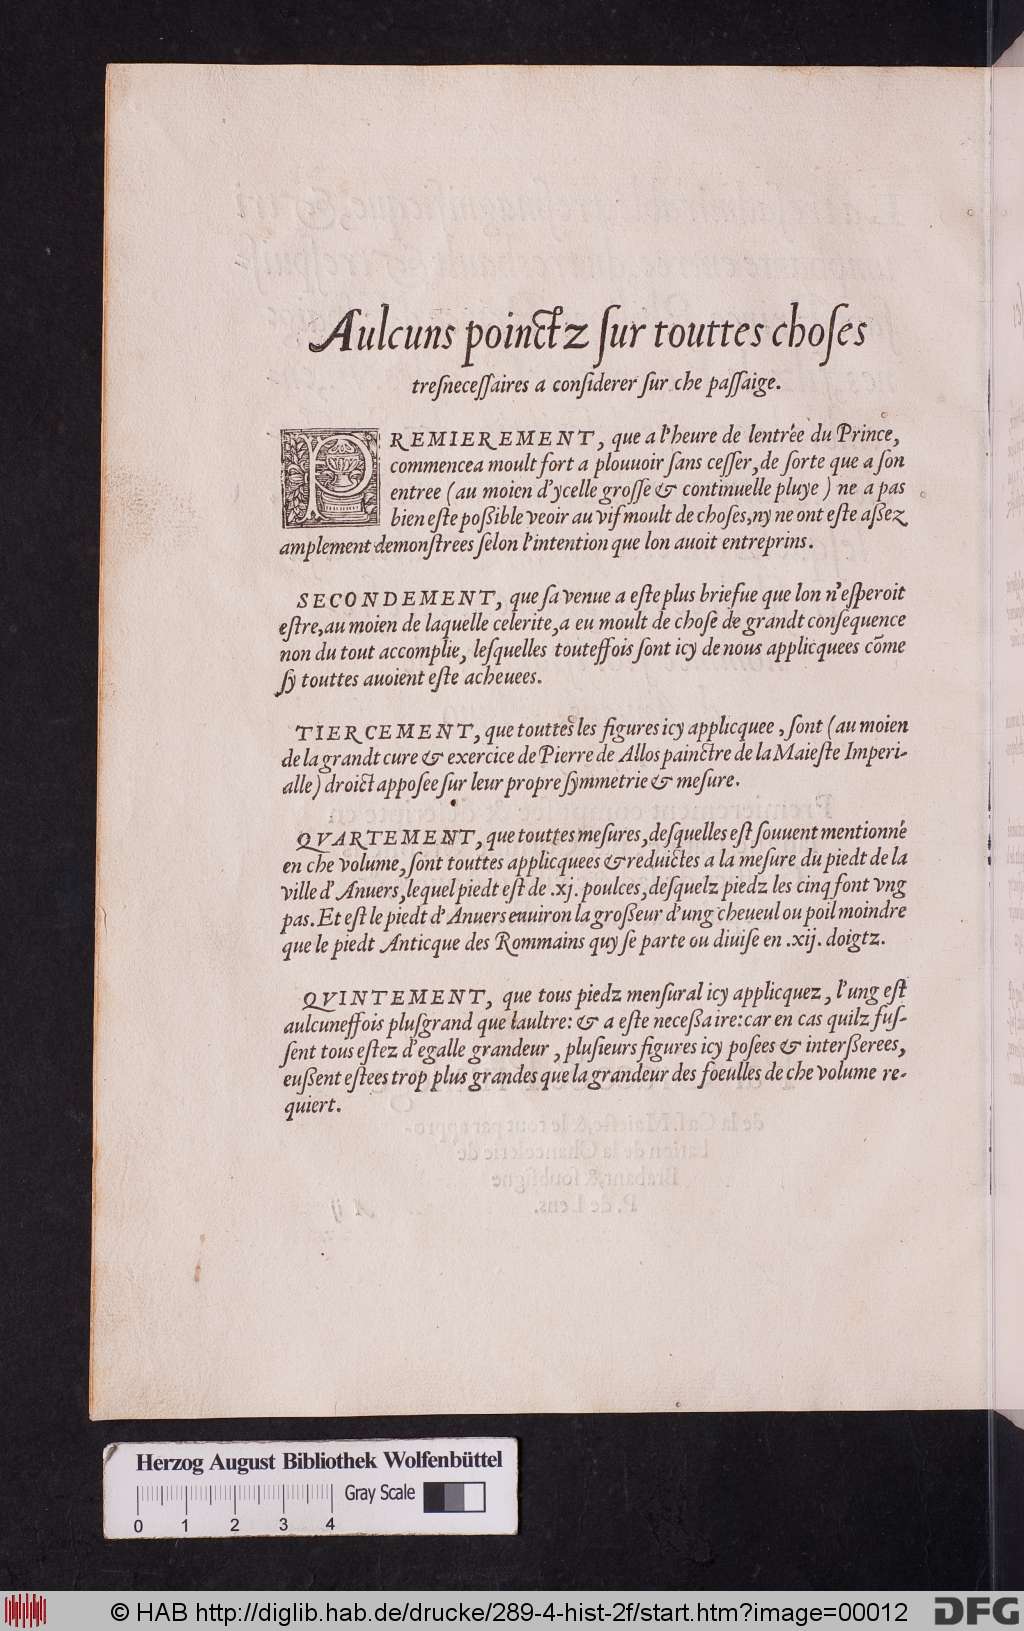 Aulcuns poinctz ſur touttes choſes
treſneceſſaires a conſiderer ſur che paſſaige.
PREMIEREMENT, que a l'heure de lentrée du Prince,
commencea moult fort a plouuoir ſans ceſſer, de ſorte que a ſon
entree (au moien d'ycelle groſſe & continuelle pluye) ne a pas
bien eſte poßible veoir au vif moult de choſes, ny ne ont eſte aßez
amplement demonſtrees ſelon l'intention que lon auoit entreprins.
SECONDEMENT, que ſa venue a eſte plus briefue que lon n'eſperoit
eſtre, au moien de laquelle celerite, a eu moult de choſe de grandt conſequence
non du tout accomplie, leſquelles touteffois ſont icy de nous applicquees cõme
ſy touttes auoient eſte acheuees.
TIERCEMENT, que touttes les figures icy applicquee, ſont (au moien
de la grandt cure & exercice de Pierre de Allos painctre de la Maieſte Imperi-
alle) droict appoſee ſur leur propre ſymmetrie & meſure.
QVARTEMENT, que touttes meſures, deſquelles eſt ſouuent mentionné
en che volume, ſont touttes applicquees & reduictes a la meſure du piedt de la
ville d'Anuers, lequel piedt eſt de .xj. poulces, deſquelz piedz les cinq font vng
pas. Et eſt le piedt d'Anuers enuiron la großeur d'ung cheueul ou poil moindre
que le piedt Anticque des Rommains quy ſe parte ou diuiſe en .xij. doigtz.
QVINTEMENT, que tous piedz menſural icy applicquez, l'ung eſt
aulcuneffois pluſgrand que laultre: & a eſte neceßaire: car en cas quilz fuſ-
ſent tous eſtez d'egalle grandeur, pluſieurs figures icy poſees & interßerees,
eußent eſtees trop plus grandes que la grandeur des foeulles de che volume re-
quiert.
Herzog August Bibliothek Wolfenbüttel
Gray Scale
0 1 2 3 4
© HAB http://diglib.hab.de/drucke/289-4-hist-2f/start.htm?image=00012 DFG